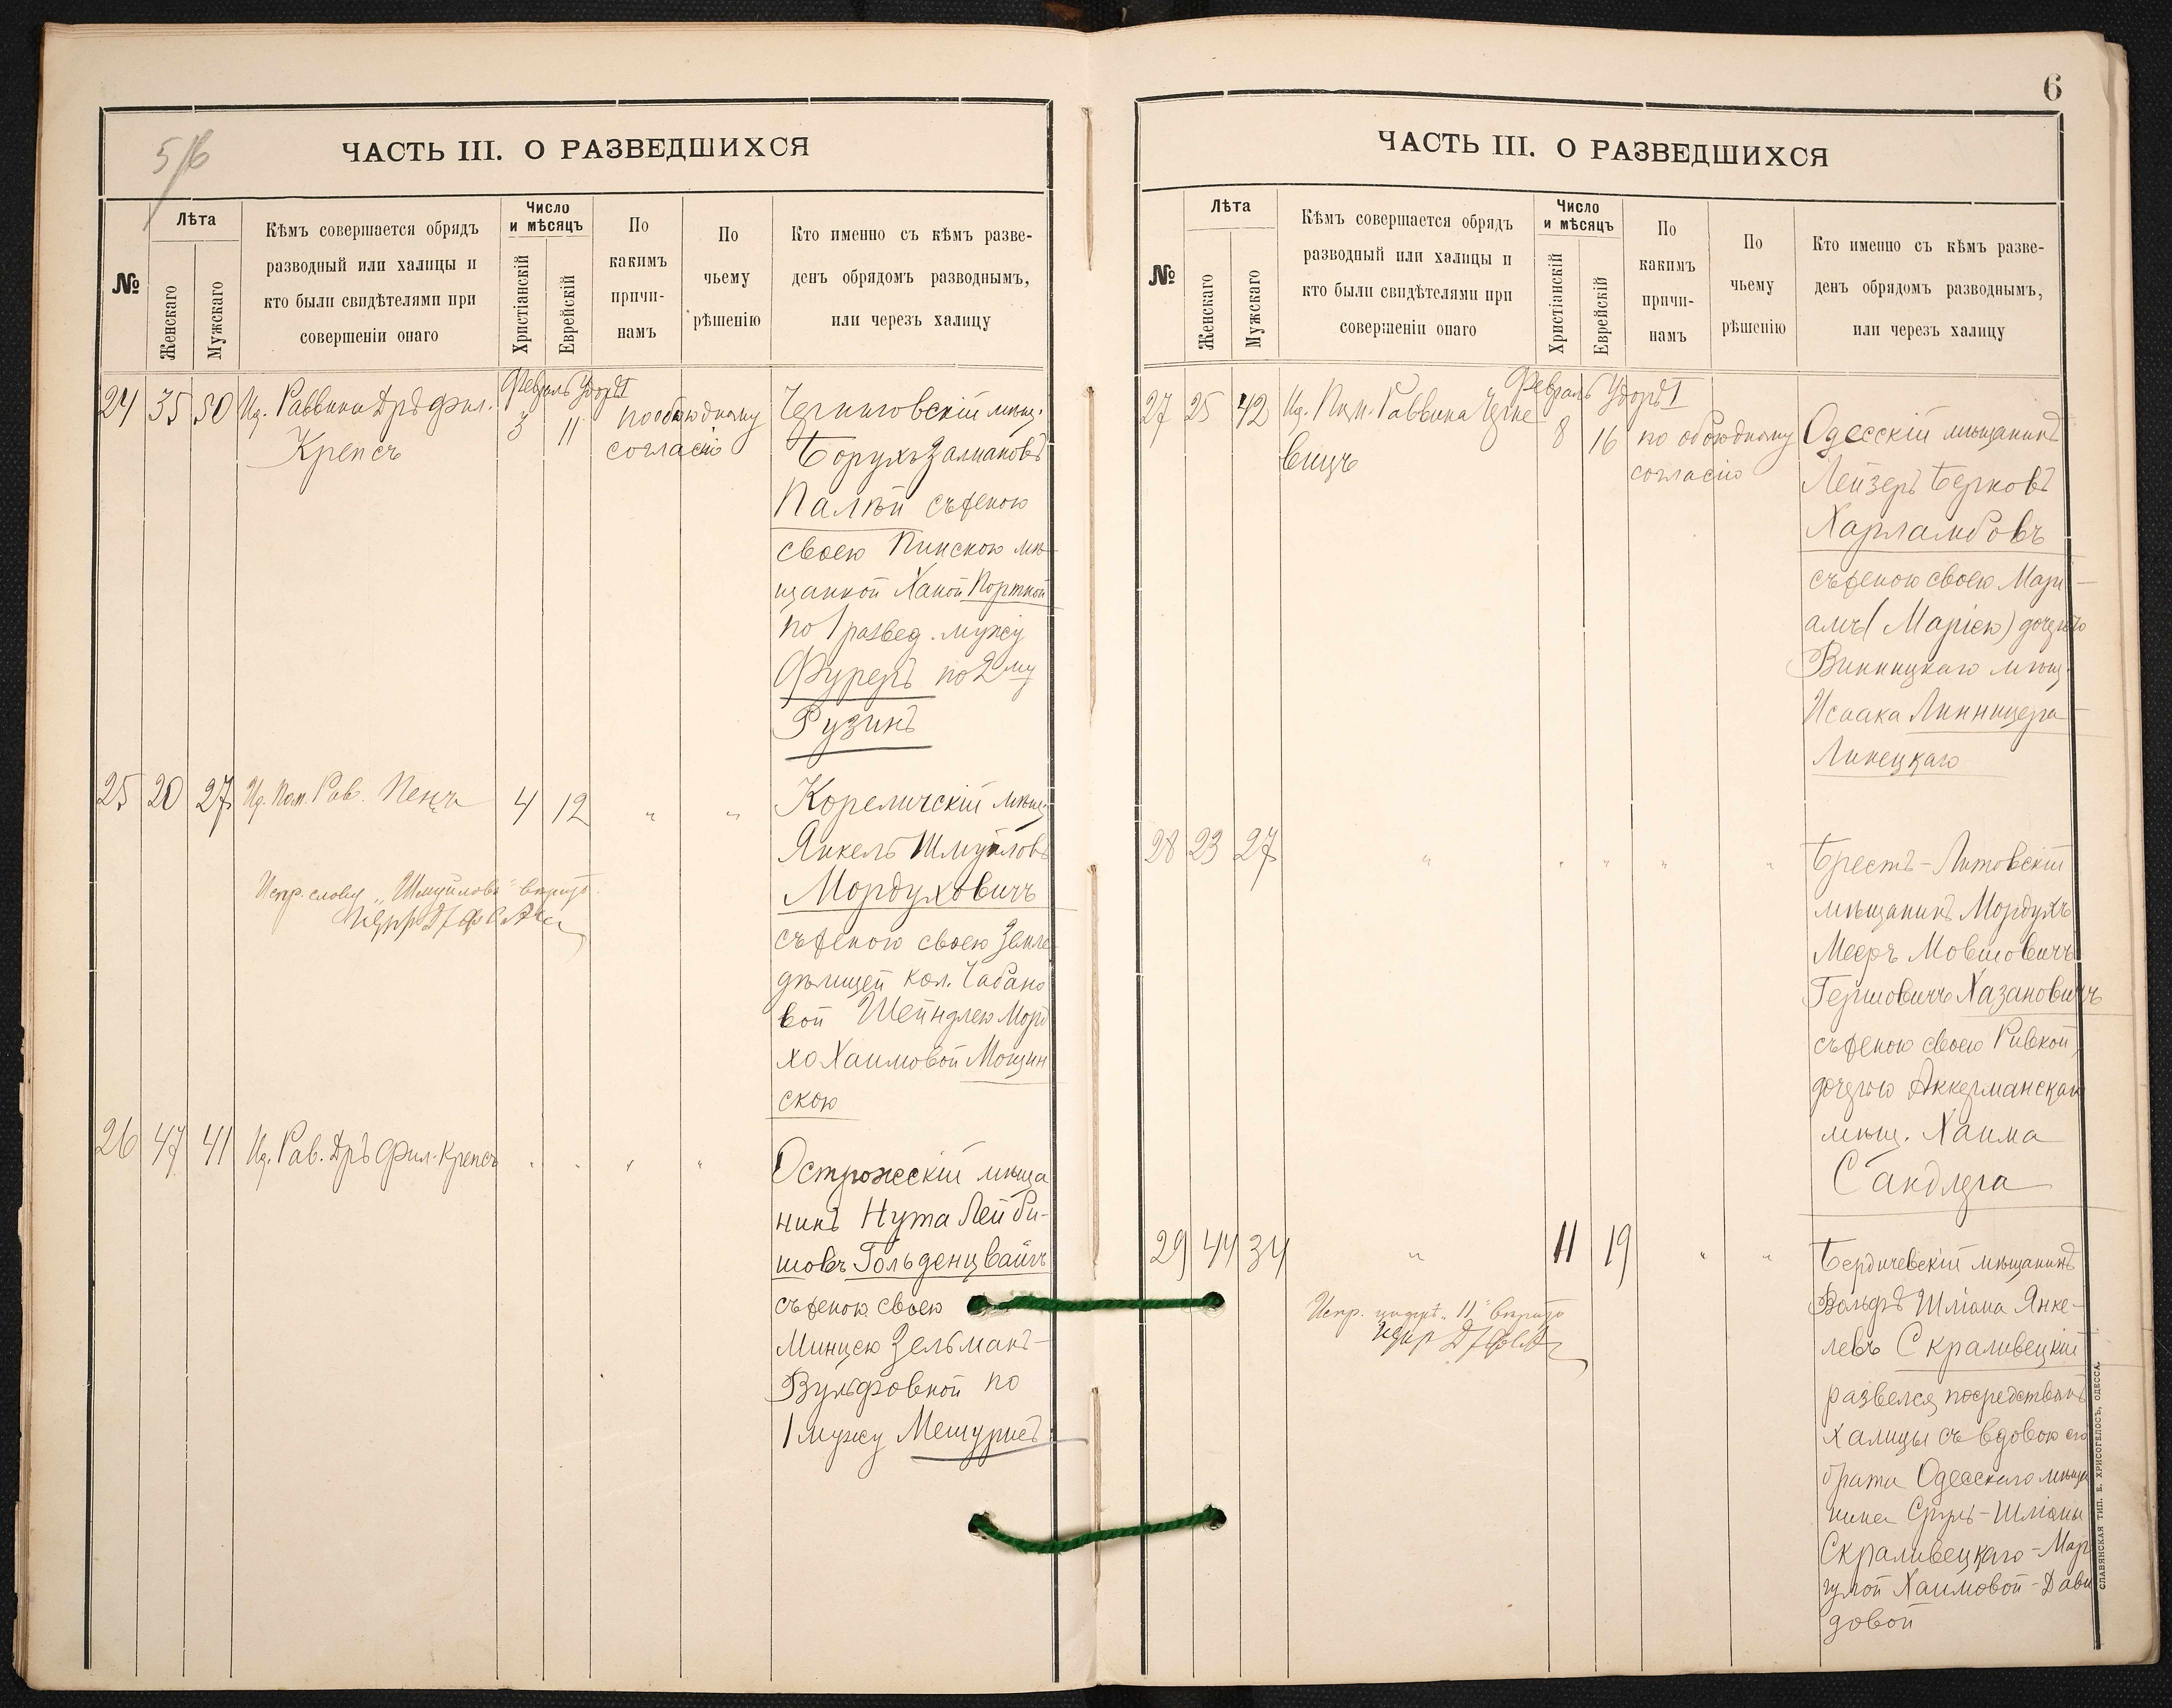 5/6
ЧАСТЬ III. О РАЗВЕДШИХСЯ
№
Лѣта
Женскаго
Мужскаго
Кѣмъ совершается обрядъ
разводный или халицы и
кто были свидѣтелями при
совершеніи онаго
Число
и мѣсяцъ
Христіанскій
Еврейскій
По
какимъ
причи-
намъ
По
чьему
рѣшенію
Кто именно съ кѣмъ разве-
денъ обрядомъ разводнымъ,
или черезъ халицу
24 35 50 Ид. Раввина Дръ Фил.
Крепсъ
Февраль Удоръ I
3 11
по обоюдному
согласію
Черниговскій мѣщ.
Борухъ Залмановъ
Палѣй съ женою
своею Пинскою мѣ-
щанкой Ханой Портной
по 1 развед. мужу
Фуреръ по 2му
Рузинъ
25 20 27 Ид. Пом. Рав. Пенъ 4 12 " "
Испр. слову „Шмуйловъ" вѣрить.
Кореличскій мѣщ.
Янкель Шмуйловъ
Мордуховичъ
съ женою своею Земле-
дѣлицей кол. Чабано
вой Шейндлею Морд
хо Хаимовой Мощин
скою
26 47 41 Ид. Рав. Дръ Фил. Крепсъ " " " "
Острожескій мѣща
нинъ Нута Лейби-
шовъ Гольденцвайгъ
съ женою своею
Минцею Зельманъ-
Вульфовной по
1 мужу Мешуристъ
6
ЧАСТЬ III. О РАЗВЕДШИХСЯ
№
Лѣта
Женскаго
Мужскаго
Кѣмъ совершается обрядъ
разводный или халицы и
кто были свидѣтелями при
совершеніи онаго
Число
и мѣсяцъ
Христіанскій
Еврейскій
По
какимъ
причи-
намъ
По
чьему
рѣшенію
Кто именно съ кѣмъ разве-
денъ обрядомъ разводнымъ,
или черезъ халицу
27 25 42 Ид. Пом. Раввина
вицъ
Февраль Удоръ I
8 16
по обоюдному
согласію
Одесскій мѣщанинъ
Лейзеръ Берковъ
Харламбовъ
съ женою своею Мари-
амъ (Маріею) дочерью
Винницкаго мѣщ.
Исаака Линницера-
Линецкаго
28 23 27 " " " " "
Брестъ-Литовскій
мѣщанинъ Мордухъ
Мееръ Мовшовичъ
Гершовичъ Хазановичъ
съ женою своею Ривкой,
дочерью Аккерманскаго
мѣщ. Хаима
Сандлера
29 44 34 " 11 19 " "
Испр. цифрѣ „11" вѣрить
Бердичевскій мѣщанинъ
Вольфъ Шліома Янке-
левъ Скраливецкій
развелся посредствомъ
халицы съ вдовою его
брата Одесскаго мѣща
нина Сруль-Шліомы
Скраливецкаго - Мар
гулой Хаимовой - Дави
довой
СЛАВЯНСКАЯ ТИП. Е. ХРИСОГЕЛОСЪ, ОДЕССА.